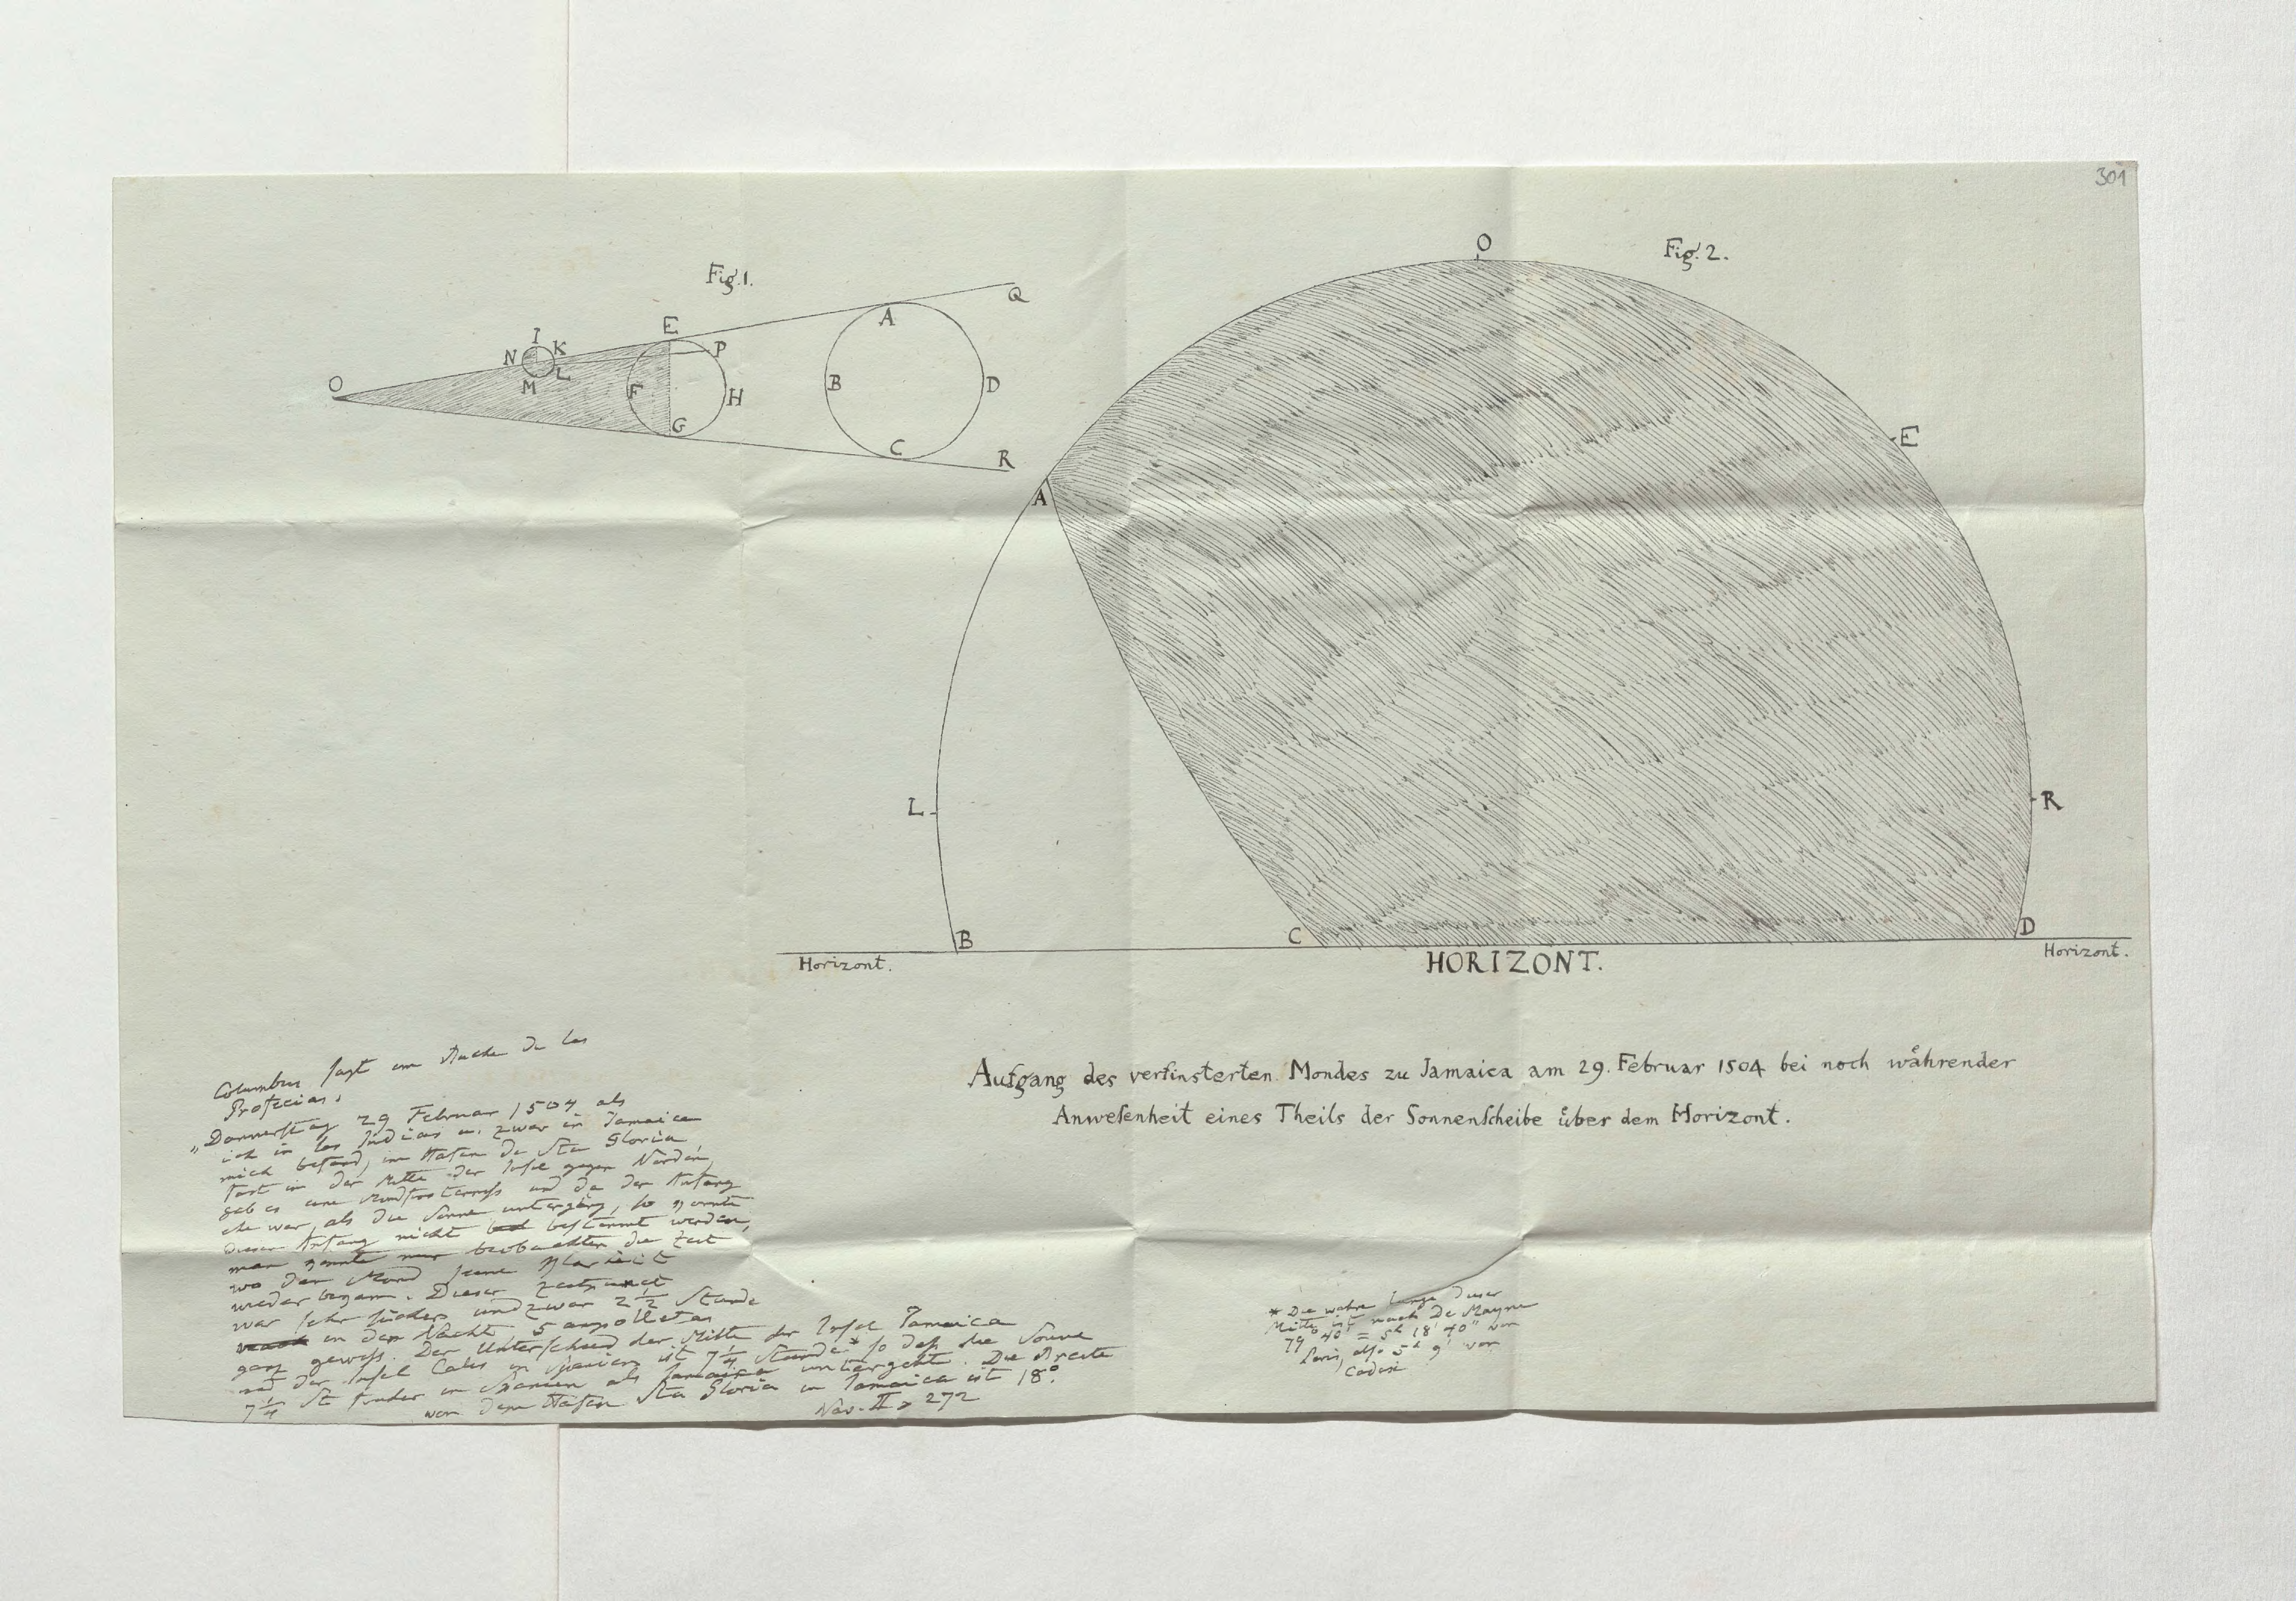 301
Fig. 1.
O
N
I
K
L
M
E
P
F
H
G
A
B
D
C
Q
R
Fig. 2.
O
E
A
L
R
B
C
D
Horizont.
HORIZONT.
Horizont.
Aufgang des verfinsterten Mondes zu Jamaica am 29. Februar 1504 bei noch währender
Anwesenheit eines Theils der Sonnenscheibe über dem Horizont.
Columbus sagt im de las
Profecias.
„Donnerstag 29 Februar 1504 als
ich in las Indias u. zwar in Jamaica
mich befand, im Hafen de Sta Gloria,
fast in der Mitte der Insel gegen Norden,
gab es eine Mondfinsterniss und da der Anfang
ehe war, als die Sonne unterging, so konnte
dieser Anfang nicht bestimmt werden,
man konnte nur beobachten die Zeit
wo der Mond seine Klarheit
wieder begann. Dieser Zeitpunct
war sehr sicher und zwar 2 1/2 Stunde
in der Nacht 5 ampolletas
ganz gewiss. Der Unterschied der Mitte der Insel Jamaica
und der Insel Cales in Spanien ist 7 1/4 Stunde* so dass die Sonne
7 1/4 St früher in Spanien als Jamaica untergeht. Die Breite
von dem Hafen Sta Gloria in Jamaica ist 18°.
Nav. II p 272
* Die wahre Länge dieser
Mitte ist nach De Mayne
79° 40' = 5h 18' 40" von
Paris, also 5h 9' von
Cadix